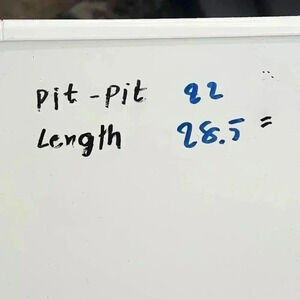 pit - pit 22
Length 28.5 =